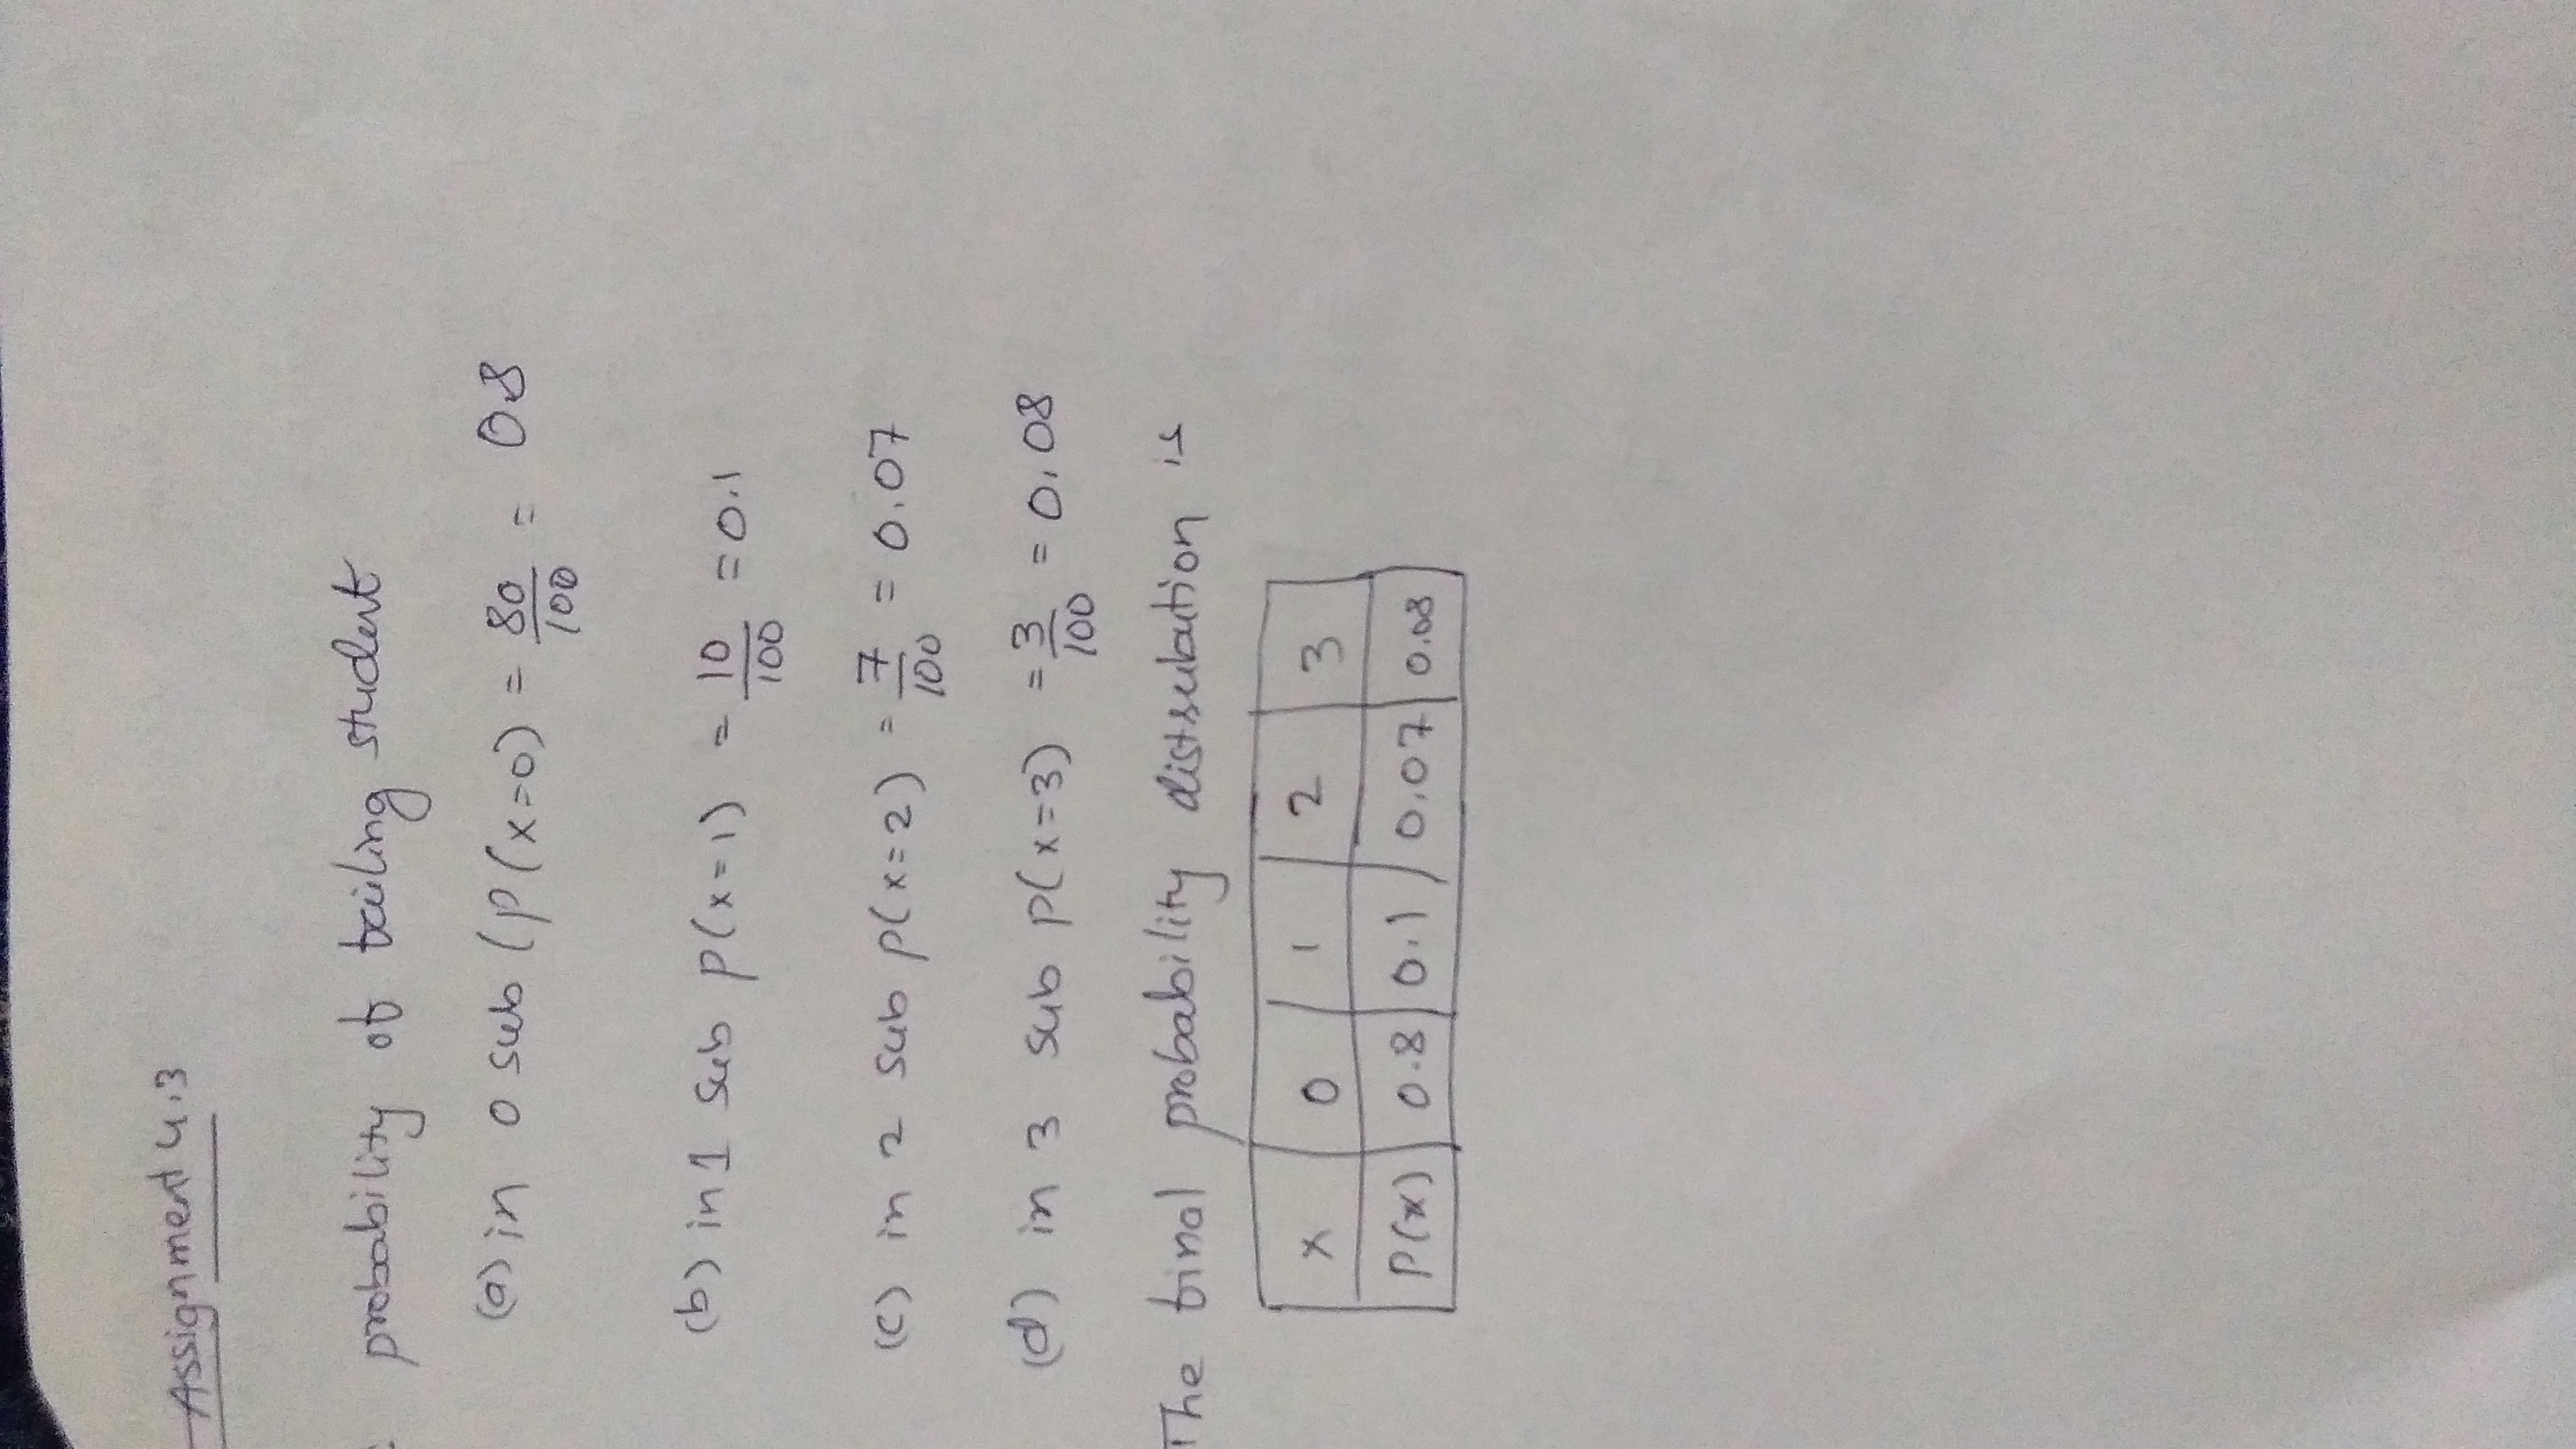 Assignment 4.3
probability of failing student
(a) in 0 sub (P(x=0) = 80/100 = 0.8
(b) in 1 sub P(x=1) = 10/100 = 0.1
(c) in 2 sub P(x=2) = 7/100 = 0.07
(d) in 3 sub P(x=3) = 3/100 = 0.08
The final probability distribution is
x 0 1 2 3
P(x) 0.8 0.1 0.07 0.08